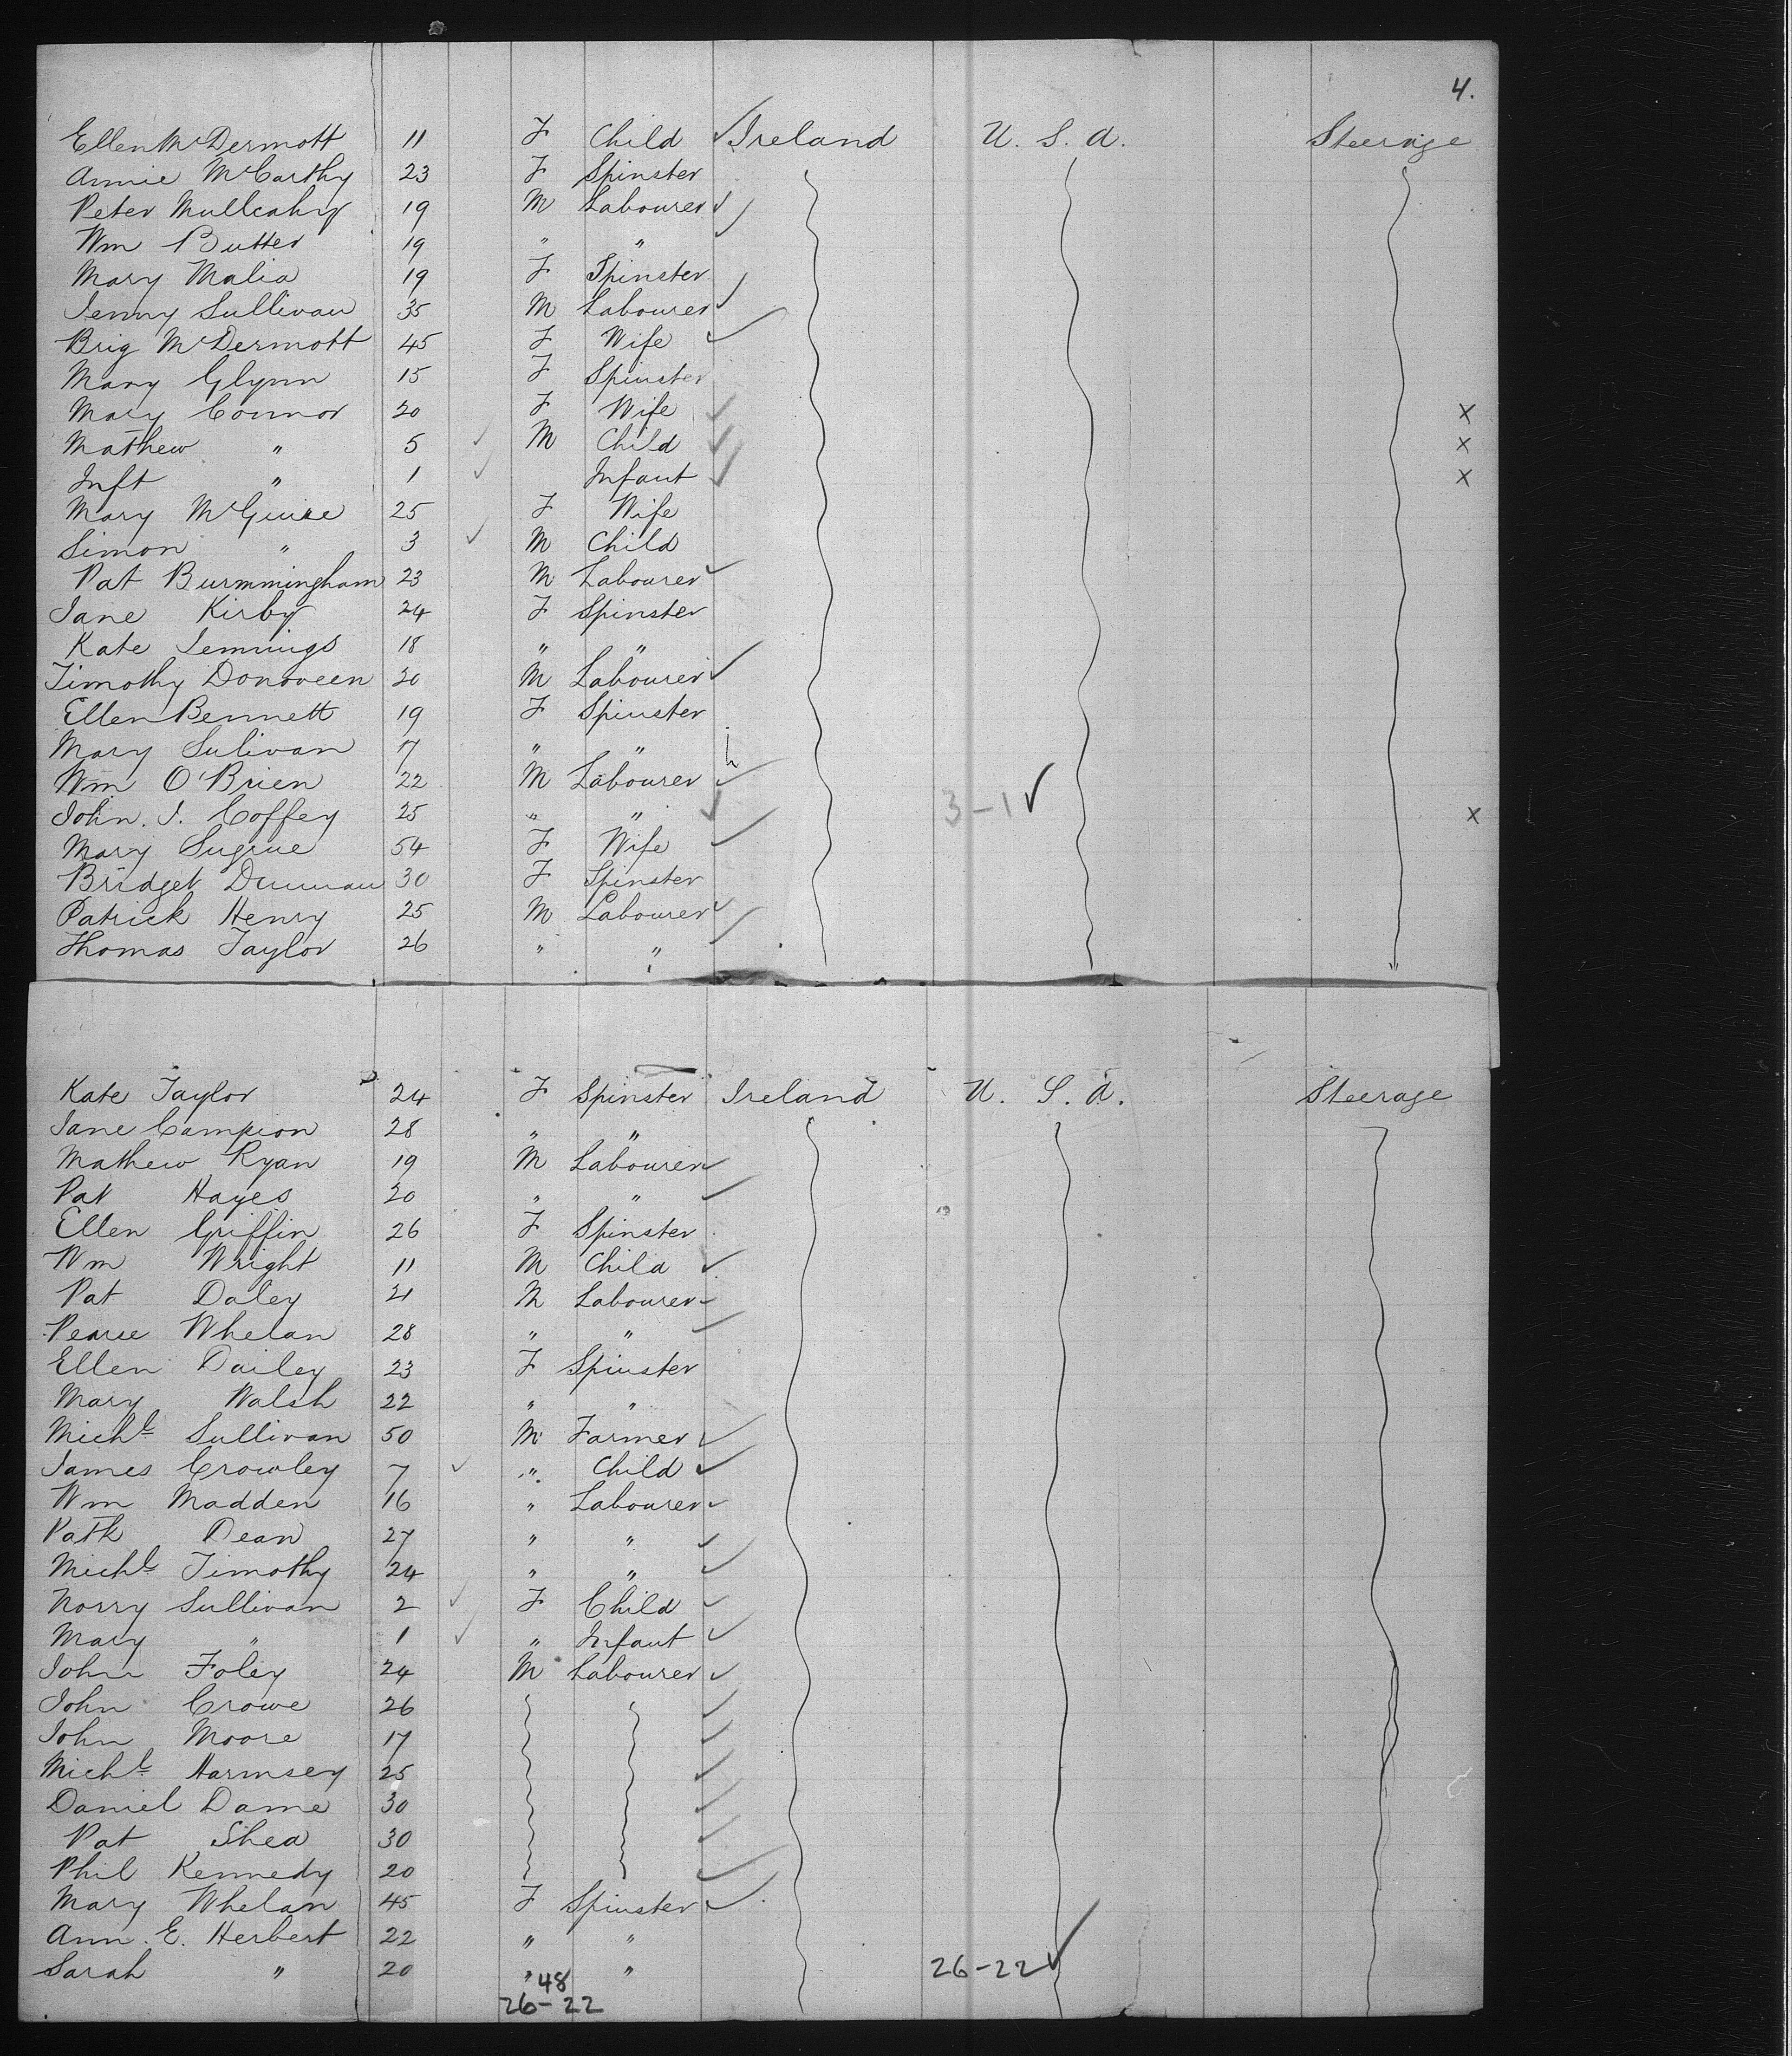 4.
Ellen McDermott 11 F Child Ireland U. S. A. Steerage
Annie McCarthy 23 F Spinster
Peter Mullcahy 19 M Labourer
Wm Butter 19 " "
Mary Malia 19 F Spinster
Jenny Sullivan 35 M Labourer
Brig McDermott 45 F Wife
Mary Glynn 15 F Spinster
Mary Connor 20 F Wife X
Mathew " 5 M Child X
Inft " 1 Infant X
Mary McGuire 25 F Wife
Simon " 3 M Child
Pat Burmmingham 23 M Labourer
Jane Kirby 24 F Spinster
Kate Jennings 18 " "
Timothy Donoveen 20 M Labourer
Ellen Bennett 19 F Spinster
Mary Sulivan 17 " "
Wm O'Brien 22 M Labourer
John. J. Coffey 25 " " 3-1 X
Mary Sugrue 54 F Wife
Bridget 30 F Spinster
Patrick Henry 25 M Labourer
Thomas Taylor 26 " "
Kate Taylor 24 F Spinster Ireland U. S. A. Steerage
Jane Campion 28 " "
Mathew Ryan 19 M Labourer
Pat Hayes 20 " "
Ellen Griffin 26 F Spinster
Wm Wright 11 M Child
Pat Daley 21 M Labourer
Pearse Whelan 28 " "
Ellen Dailey 23 F Spinster
Mary Walsh 22 " "
Michl Sullivan 50 M Farmer
James Crowley 7 " Child
Wm Madden 16 " Labourer
Patk Dean 27 " "
Michl Timothy 24 " "
Norry Sullivan 2 F Child
Mary " 1 " Infant
John Foley 24 M Labourer
John Crowe 26
John Moore 17
Michl Harmsey 25
Daniel Dame 30
Pat Shea 30
Phil Kennedy 20
Mary Whelan 45 F Spinster
Ann. E. Herbert 22 " "
Sarah " 20 " " 26-22
48
26-22